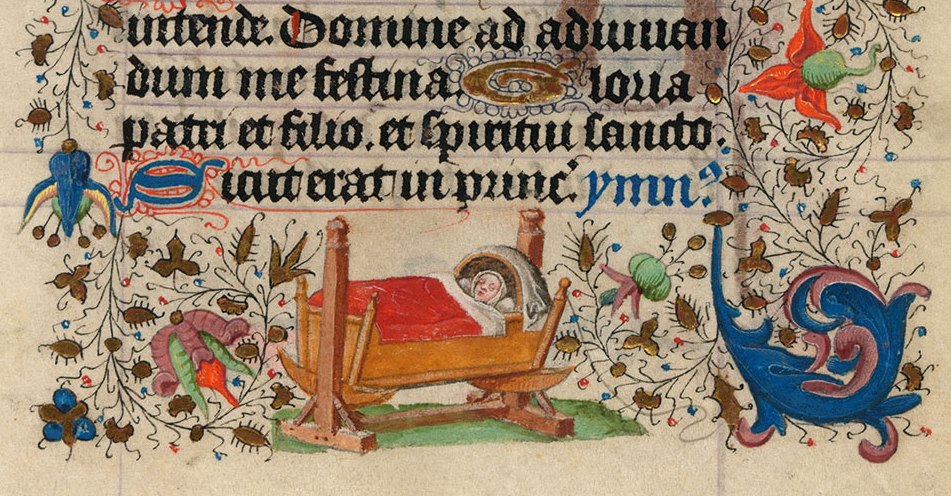 intende. Domine ad adiuuan
dum me festina. Gloria
patri et filio. et spiritui sancto.
Sicut erat in princ. ymnꝰ